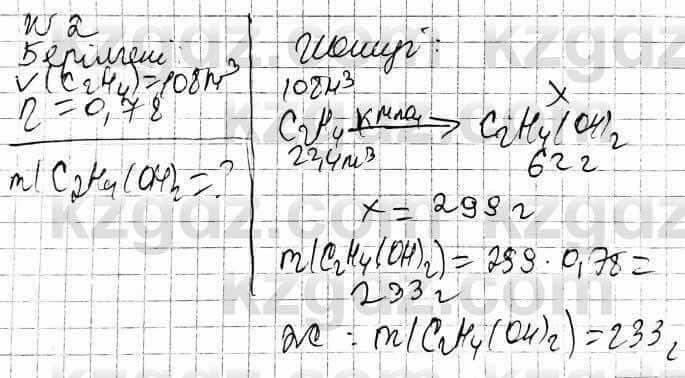 № 2
Берілгені:
V(C₂H₄)=108м³
η=0,78
m(C₂H₄(OH)₂=?
Шешуі:
108м³ x
C₂H₄ KMnO₄→ C₂H₄(OH)₂
22,4м³ 62г
x = 299 г
m(C₂H₄(OH)₂) = 299 · 0,78 =
233 г
m(C₂H₄(OH)₂) = 233 г